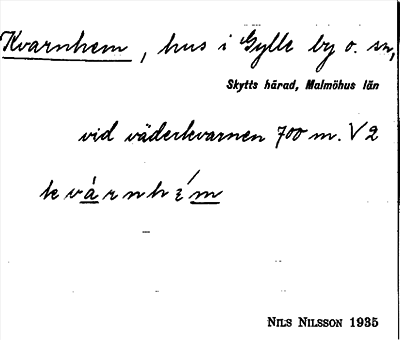 Kvarnhem, hus i Gylle by o. sn,
Skytts härad, Malmöhus län
vid väderkvarnen 700 m. V 2
kvárnhɛ́m
NILS NILSSON 1935